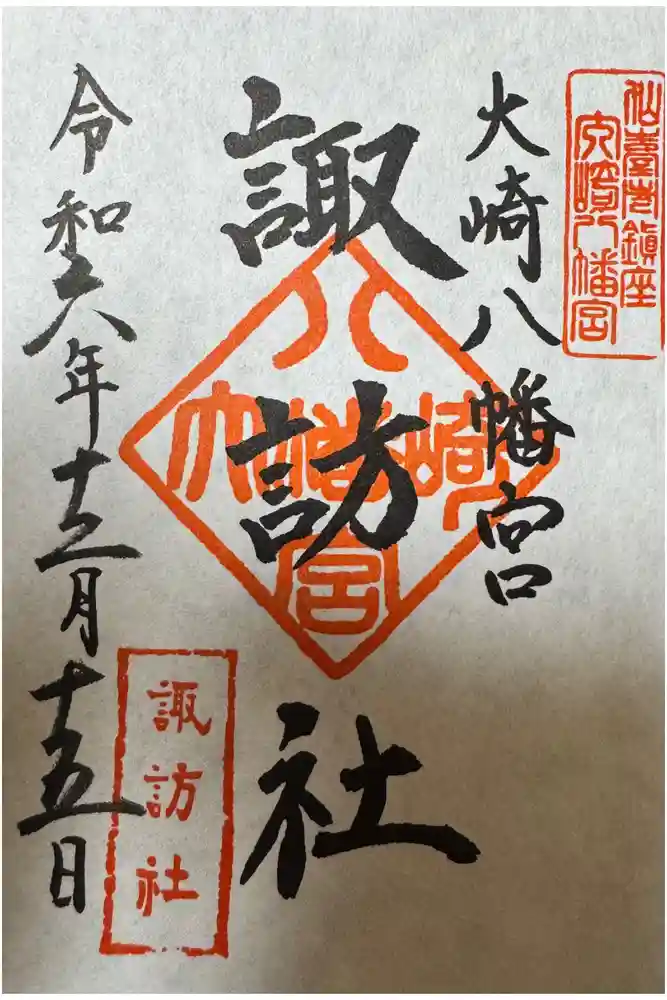 仙臺市鎮座
大崎八幡宮
大崎八幡宮
諏訪社
八幡宮
大崎
諏訪社
令和六年十二月十五日